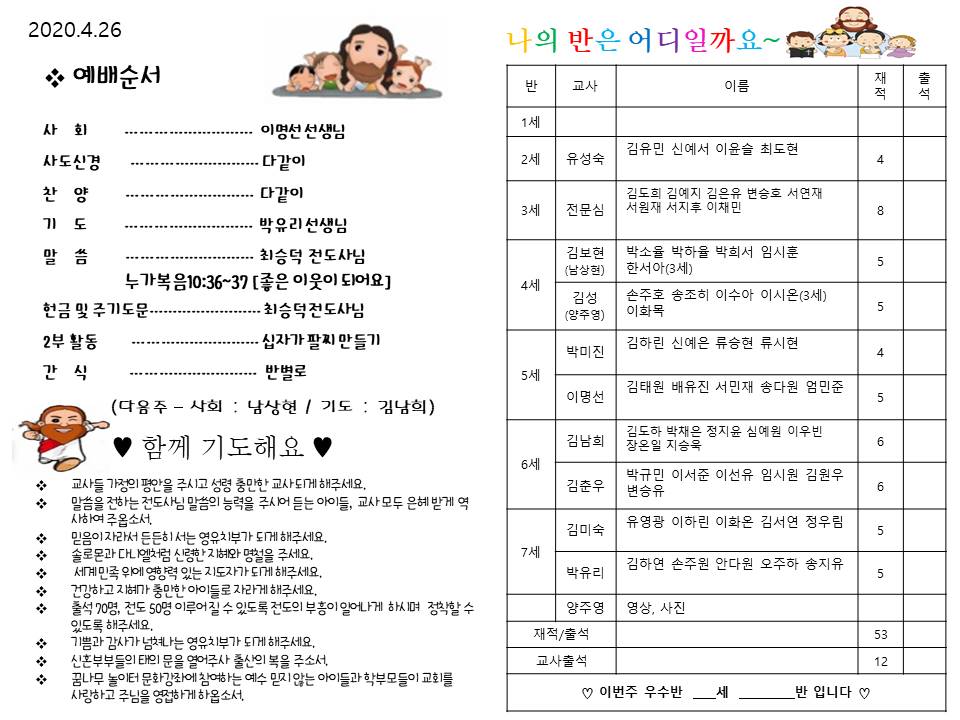 2020.4.26
❖ 예배순서
사 회 ----------------------- 이명선선생님
사도신경 ----------------------- 다같이
찬 양 ----------------------- 다같이
기 도 ----------------------- 박유리선생님
말 씀 ----------------------- 최승덕 전도사님
누가복음10:36~37 [좋은 이웃이 되어요]
헌금 및 주기도문----------------------- 최승덕전도사님
2부 활동 ----------------------- 십자가 팔찌 만들기
간 식 ----------------------- 반별로
(다음주 – 사회 : 남상현 / 기도 : 김남희)
♥ 함께 기도해요 ♥
❖ 교사들 가정의 평안을 주시고 성령 충만한 교사되게 해주세요.
❖ 말씀을 전하는 전도사님 말씀의 능력을 주시어 듣는 아이들, 교사 모두 은혜 받게 역
사하여 주옵소서.
❖ 믿음이 자라서 든든히 서는 영유치부가 되게 해주세요.
❖ 솔로몬과 다니엘처럼 신령한 지혜와 명철을 주세요.
❖ 세계 민족 위에 영향력 있는 지도자가 되게 해주세요.
❖ 건강하고 지혜가 충만한 아이들로 자라게 해주세요.
❖ 출석 70명, 전도 50명 이루어질 수 있도록 전도의 부흥이 일어나게 하시며 정착할 수
있도록 해주세요.
❖ 기쁨과 감사가 넘쳐나는 영유치부가 되게 해주세요.
❖ 신혼부부들의 태의 문을 열어주사 출산의 복을 주소서.
❖ 꿈나무 놀이터 문화강좌에 참여하는 예수 믿지 않는 아이들과 학부모들이 교회를
사랑하고 주님을 영접하게 하옵소서.
나의 반은 어디일까요~
반 교사 이름 재적 출석
1세
2세 유성숙 김유민 신예서 이윤슬 최도현 4
3세 전문심 김도희 김예지 김은유 변승호 서연재
서원재 서지후 이채민 8
4세 김보현 (남상현) 박소율 박하율 박희서 임시훈
한서아(3세) 5
김성 (양주영) 손주호 송조히 이수아 이시온(3세)
이화목 5
5세 박미진 김하린 신예은 류승현 류시현 4
이명선 김태원 배유진 서민재 송다원 엄민준 5
6세 김남희 김도하 박채은 정지윤 심예원 이우빈
장온일 지승욱 6
김춘우 박규민 이서준 이선유 임시원 김원우
변승유 6
7세 김미숙 유영광 이하린 이화온 김서연 정우림 5
박유리 김하연 손주원 안다원 오주하 송지유 5
양주영 영상, 사진
재적/출석 53
교사출석 12
♡ 이번주 우수반 ___세 ________반 입니다 ♡